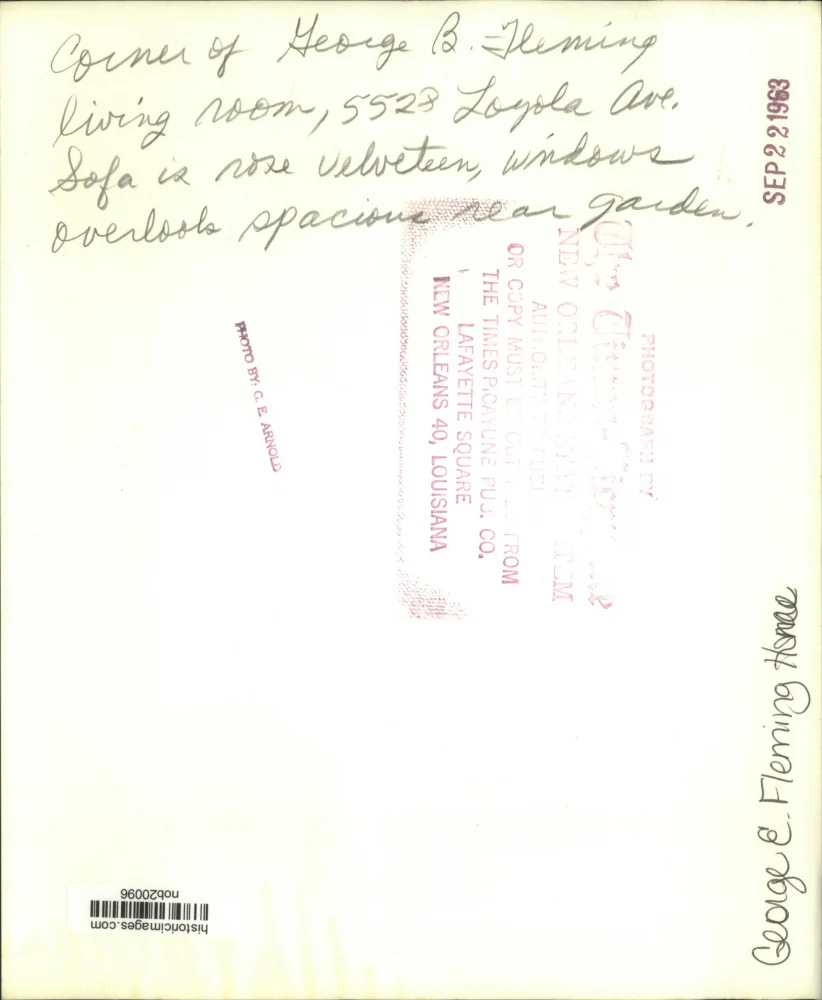 Corner of George B. Fleming
living room, 5523 Loyola Ave.
Sofa is rose velveteen, windows
overlook spacious rear garden.
SEP 22 1963
PHOTOGRAPH BY
The Times
NEW ORLEANS
AUTHORITY TO
OR COPY MUST BE FROM
THE TIMES PICAYUNE PUB. CO.
LAFAYETTE SQUARE
NEW ORLEANS 40, LOUISIANA
PHOTO BY: G. E. ARNOLD
George E. Fleming Home
historicimages.com
nob20096